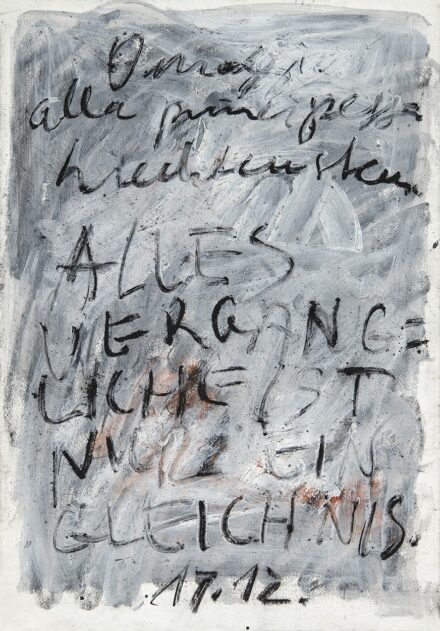 Omaggio
alla principessa
Liechtenstein
ALLES
VERGÄNG=
LICHE IST
NUR EIN
GLEICHNIS.
17.12.